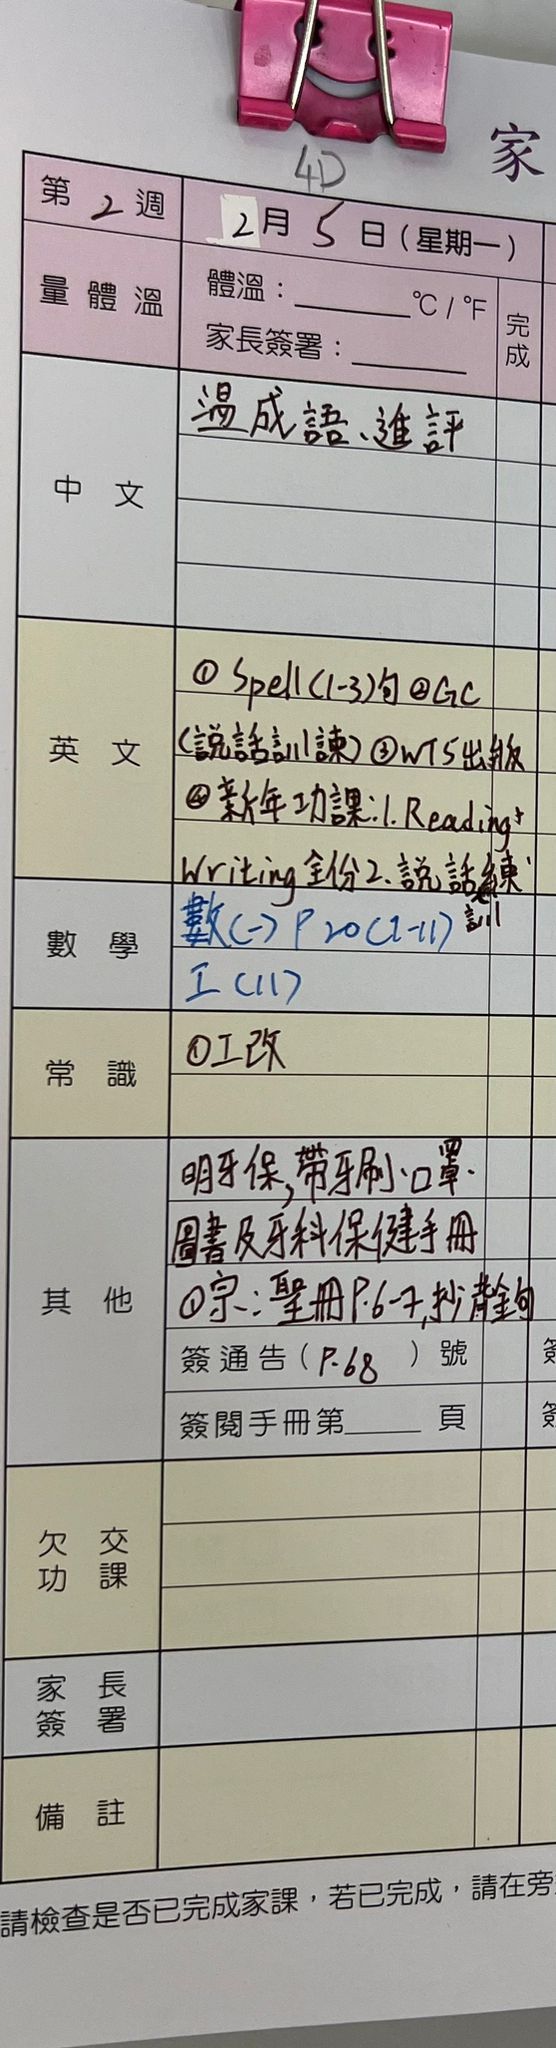 家
4D
第 2 週
2月 5 日(星期一)
量體溫
體溫：______℃/℉
家長簽署：______
完成
中文
溫成語、進評
英文
① Spell(1-3)句 ②GC
(説話訓練) ③WTS出版
④新年功課:1. Reading+
Writing全份2.説話訓練
數學
數(一) P20(1-11)
工(11)
常識
①工改
其他
明牙保,帶牙刷、口罩、
圖書及牙科保健手冊
①宗:聖冊P.6-7,抄背金句
簽通告(P.68)號
簽閱手冊第______頁
簽
簽
欠交功課
家長簽署
備註
請檢查是否已完成家課，若已完成，請在旁